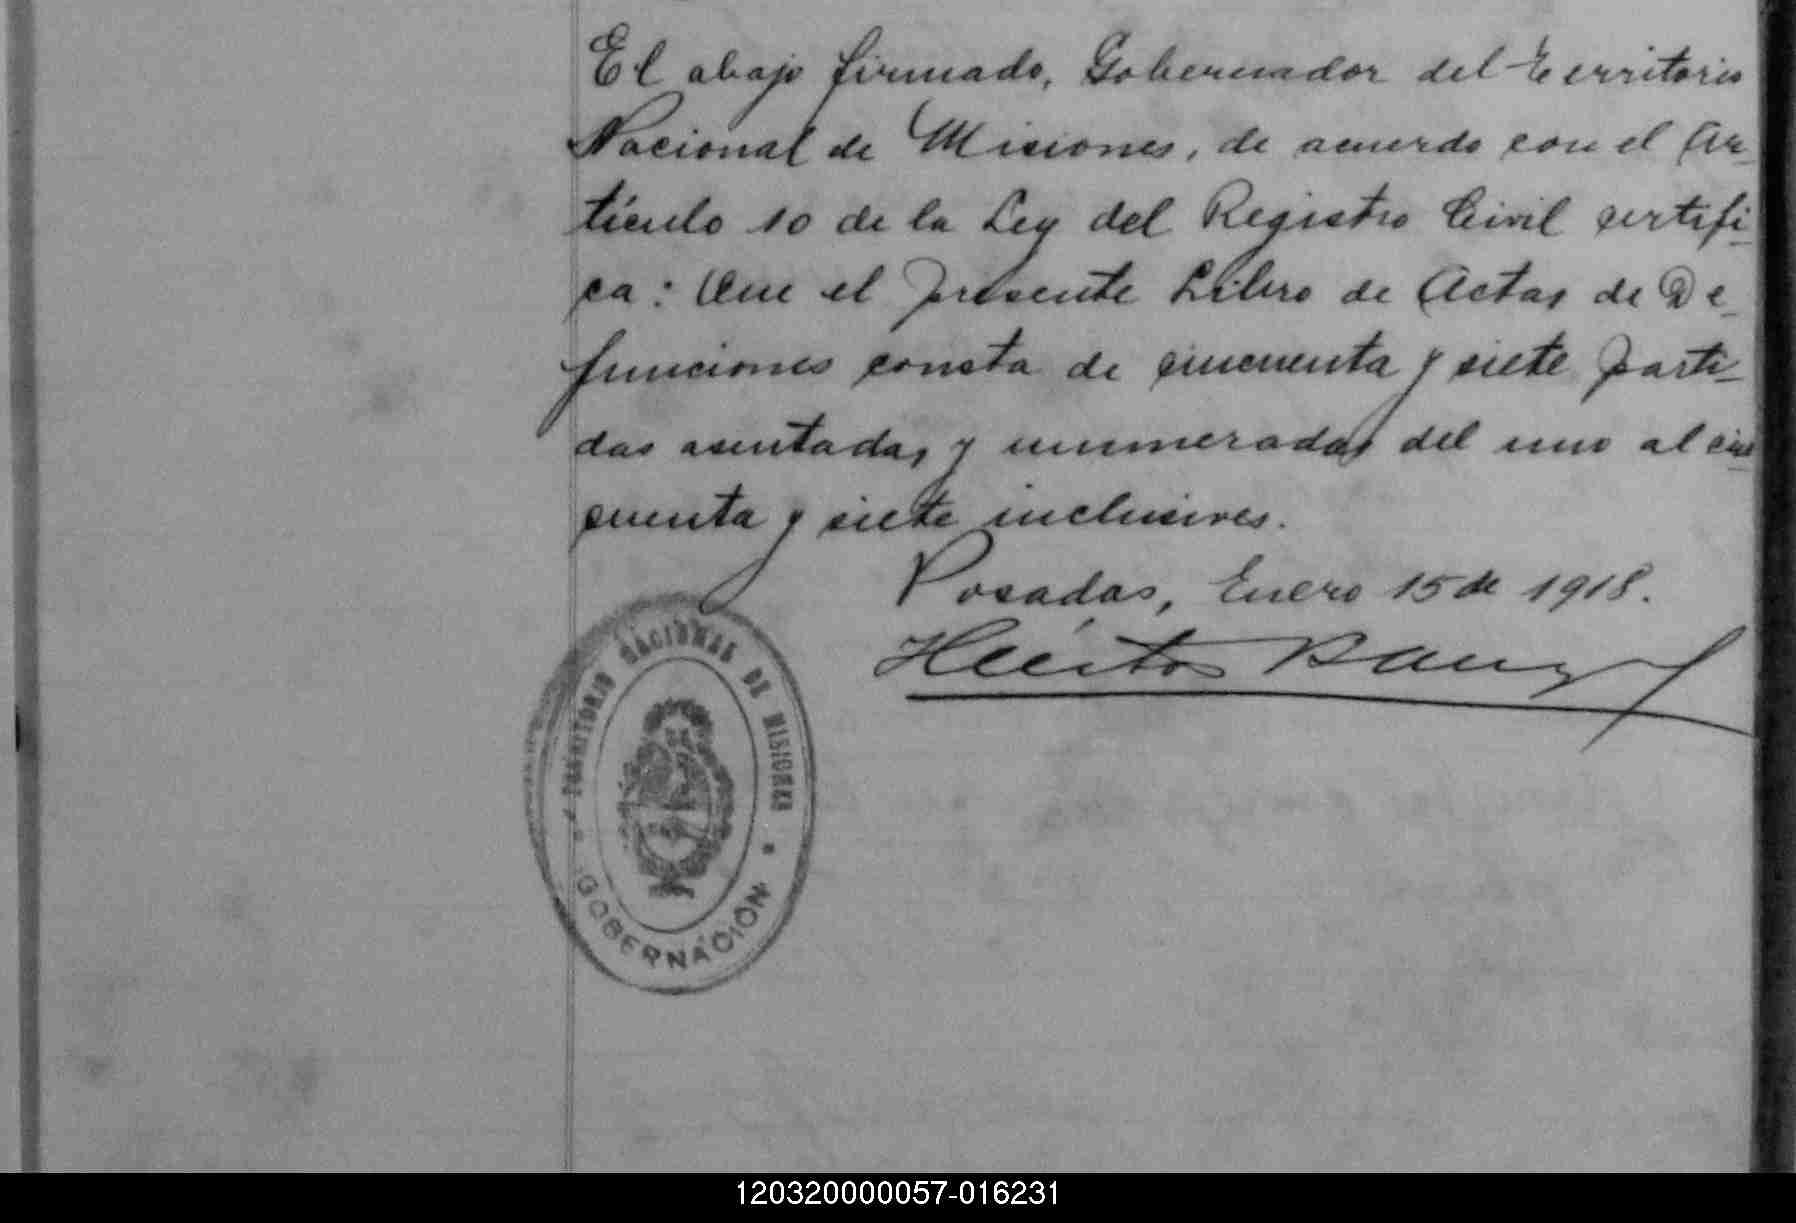 El abajo firmado, Gobernador del Territorio
Nacional de Misiones, de acuerdo con el Ar-
tículo 10 de la Ley del Registro Civil certifi-
ca: Que el presente Libro de Actas de De-
funciones consta de cincuenta y siete parti-
das asentadas y nunmeradas del uno al cin-
cuenta y siete inclusives.
Posadas, Enero 15 de 1918.
Héctor
TERRITORIO NACIONAL DE MISIONES
GOBERNACIÓN
120320000057-016231